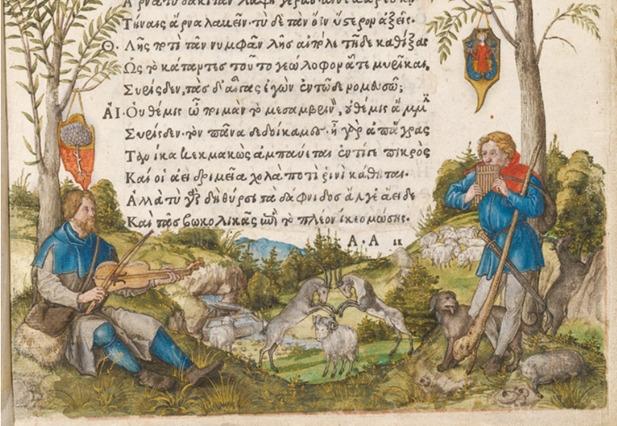 Τήναις ἄρνα λαβεῖν· τὺ δὲ τὰν ὄϊν ὕστερον ἀξεῖς·
Θ. Λῇς ποτὶ τᾶν νυμφᾶν λῇς αἰπόλε τῇδε καθίξας
Ὡς τὸ κάταντες τοῦτο γεώλοφον ᾇτε μυρῖκαι,
Συρίσδεν, τὰς δ' αἶγας ἐγὼν ἐν τῷδε νομευσῶ;
ΑΙ. Οὐ θέμις ὦ ποιμὰν τὸ μεσαμβρινὸν, οὐ θέμις ἄμμιν
Συρίσδεν· τὸν πᾶνα δεδοίκαμες· ἦ γὰρ ἀπ' ἄγρας
Τανίκα κεκμακὼς ἀμπαύεται· ἐντί γε πικρὸς
Καί οἱ ἀεὶ δριμεῖα χολὰ ποτὶ ῥινὶ κάθηται.
Ἀλλὰ τὺ γὰρ δὴ θύρσι τὰ δάφνιδος ἄλγε' ἄειδε
Καὶ τᾶς βωκολικᾶς ἐπὶ τὸ πλέον ἵκεο μώσης.
A.A ii